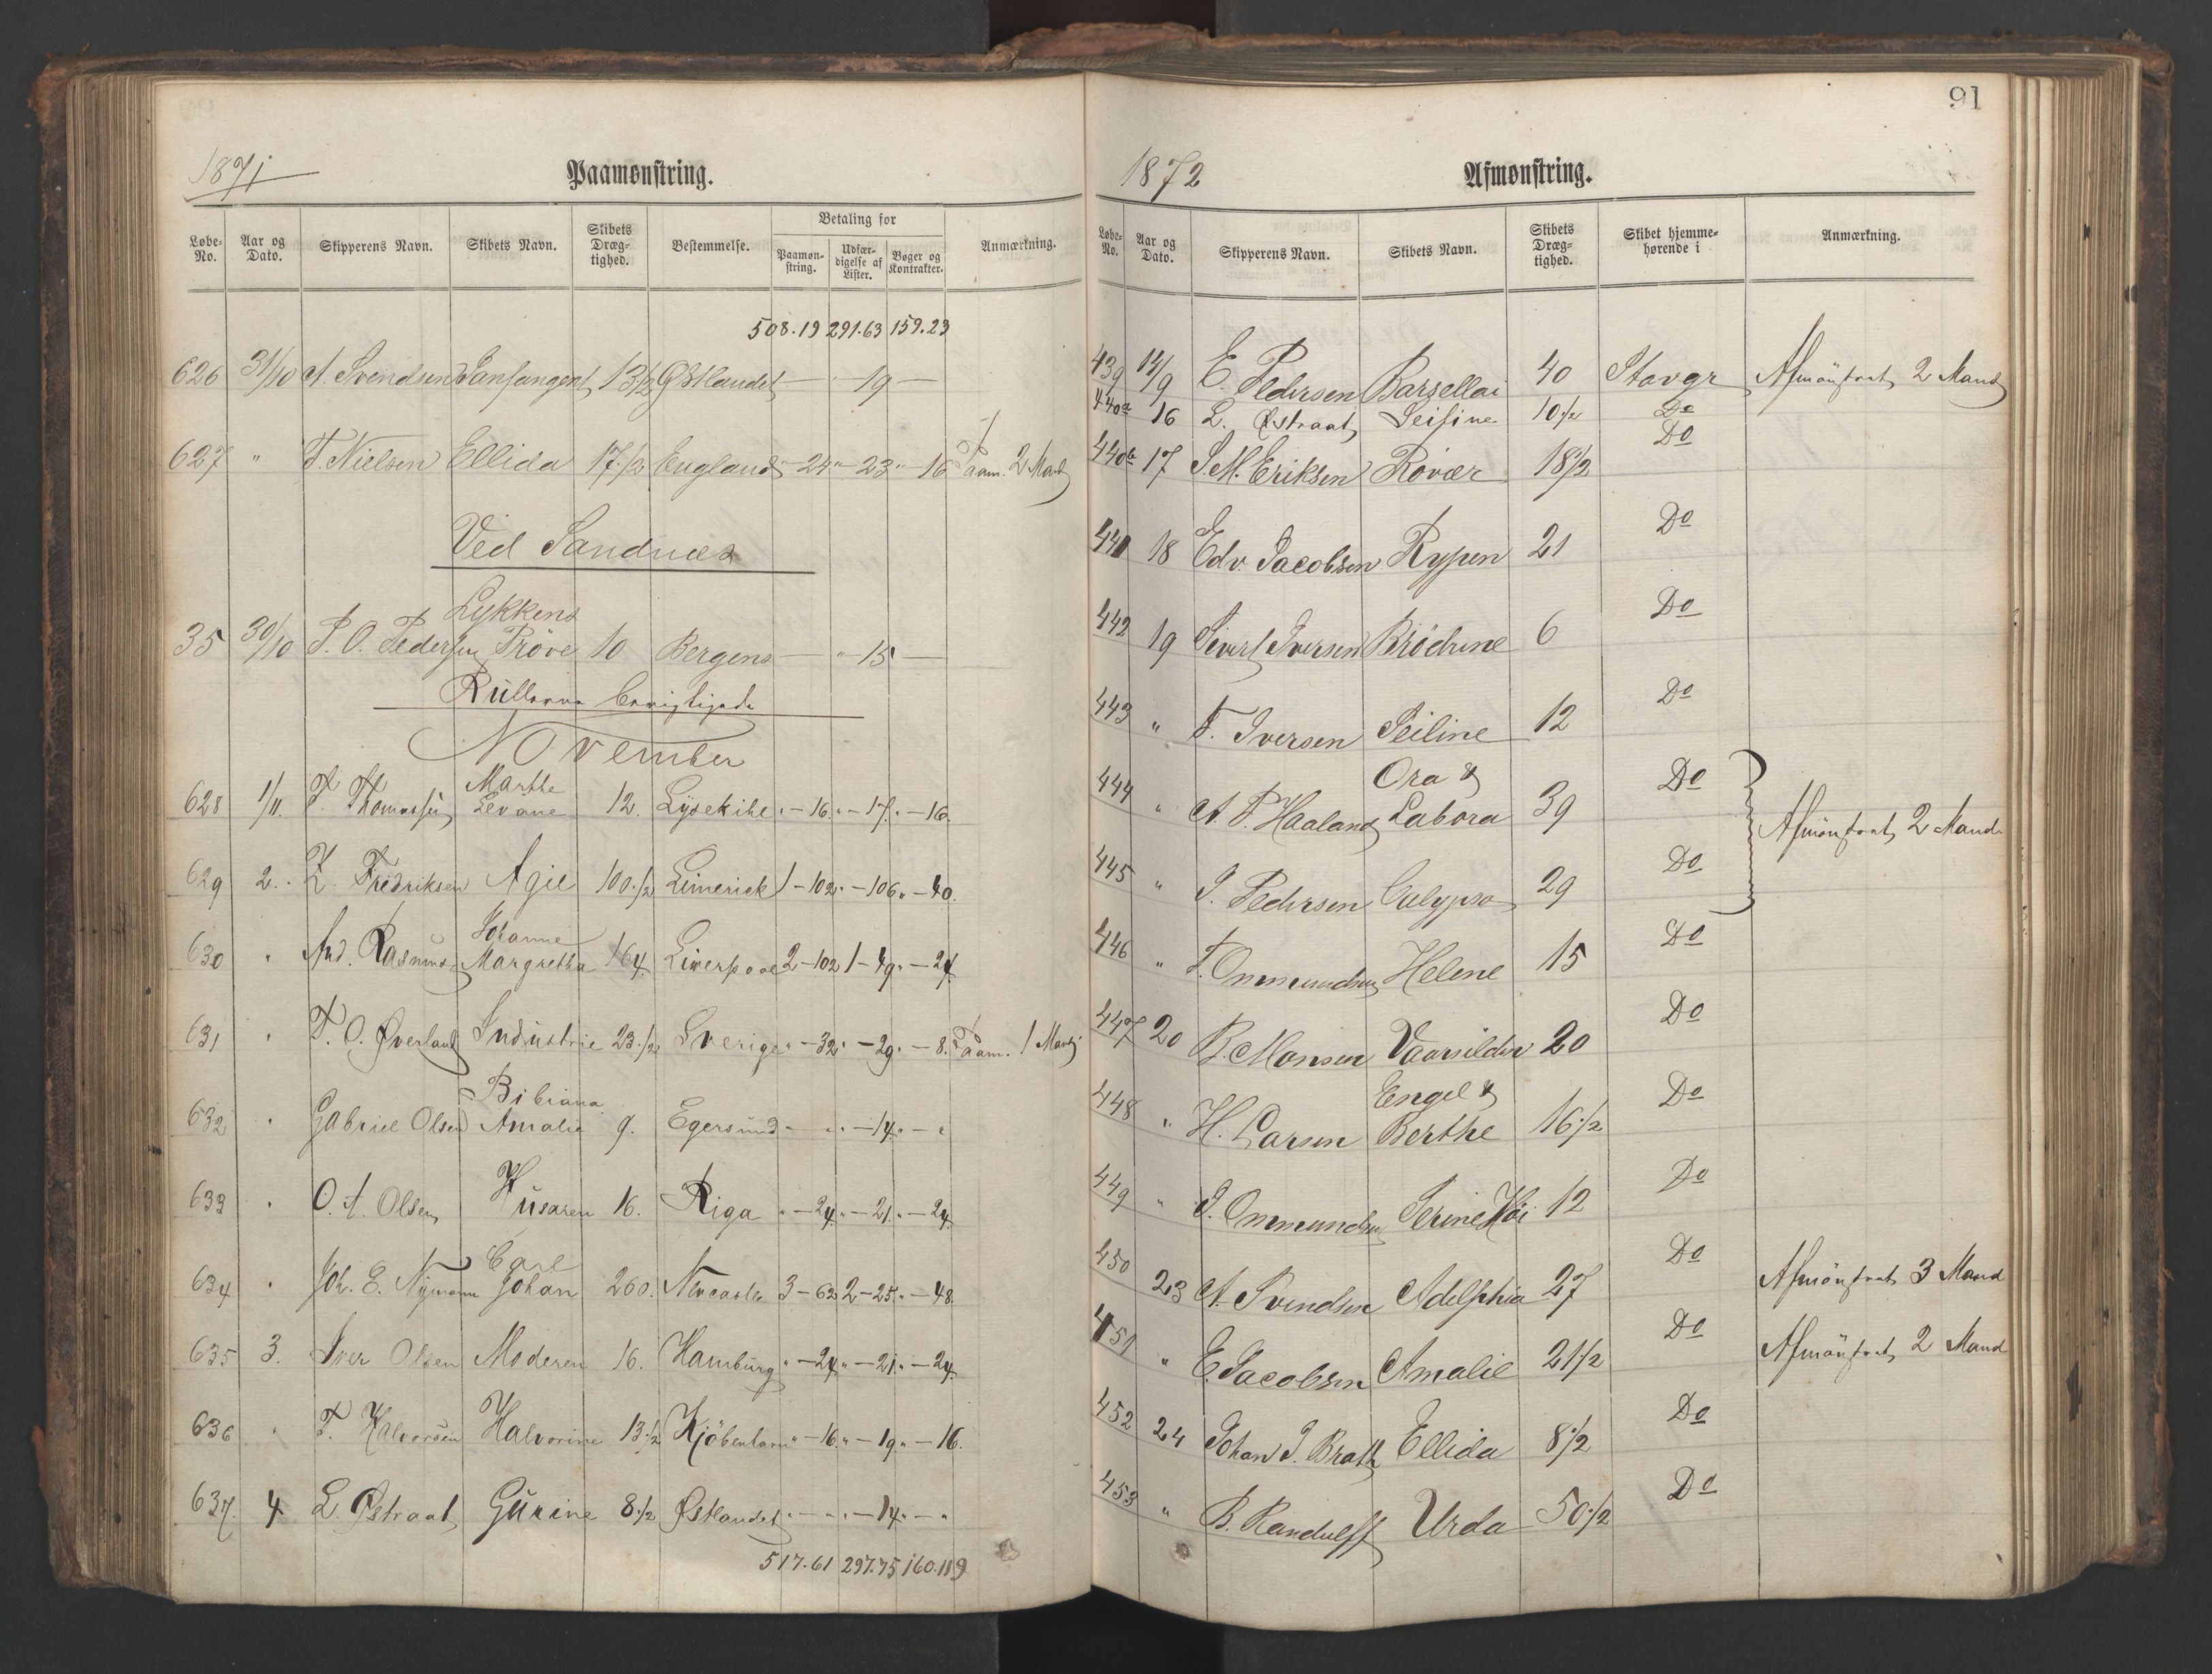 1871
Paamønstring.
Løbe-No. Aar og Dato. Skipperens Navn. Skibets Navn. Skibets Dræg-tighed. Bestemmelse. Betaling for Paamøn-string. Udfær-digelse af Lister. Bøger og Kontrakter. Anmærkning.
508.19 291.63 159.23
626 31/10 A. Svendsen 13 1/2 Østlandet — " 19 —
627 " T. Nielsen Ellida 17 1/2 England " 24 " 23 " 16 Paam. 2 Mand
Ved Sandnæs
35 30/10 P. O. Pedersen Lykkens Prøve 10 Bergen — " 15 —
November
628 1/11. T. Thomassen Marthe Levane 12. Lysekihl " — 16. " — 17. " — 16.
629 2. Z. Fredriksen Agie 100 1/2 Limerick 1 — 102 " — 106 " — 40.
630 " And. Rasmus. Johanne Margretha 164. Liverpool 2 — 102 1 — 49 " — 24.
631 " T. O. Øverland Industrie 23 1/2 Sverige " — 32 " — 29 " — 8. Paam. 1 Mand
632 " Gabriel Olsen Bibiana Amalia 9. Egersund " — " " — 14 " — "
633 " O. A. Olsen Husaren 16. Riga " — 24 " — 21. " — 24.
634 " Joh. E. Nymann Carl Johan 260. Newcastle 3 — 62 2 — 25 " — 48.
635 3. Iver Olsen Moderen 16. Hamburg " — 24 " — 21 " — 24.
636 " T. Halvorsen Halvorine 13 1/2 Kjöbenhavn " — 16. " — 19 " — 16.
637. 4. L. Østraat Gurine 8 1/2 Østlandet " — " " — 14. " — "
517.61 297.75 160.119
91
1872
Afmønstring.
Løbe-No. Aar og Dato. Skipperens Navn. Skibets Navn. Skibets Dræg-tighed. Skibet hjemme-hørende i Anmærkning.
439 14/9 E. Pedersen Barsellai 40 Stavgr Afmönstret 2 Mand
440a 16 L. Østraat Seisine 10 1/2 Do
440b 17 S. M. Eriksen Røvær 18 1/2 Do
441 18 Edv. Jacobsen Rypen 21 Do
442 19 Sivert Iversen Brödrene 6 Do
443 " T. Iversen Seiline 12 Do
444 " A. P. Haaland Ora & Labora 39 Do Afmönstret 2 Mand
445 " J. Pedersen Calypso 29 Do
446 " T. Ommundsen Helene 15 Do
447 20 B. Monsen Vaarsilden 20 Do
448 " H. Larsen Engel & Berthe 16 1/2 Do
449 " J. Ommundsen Serine Köi 12 Do
450 23 A. Svendsen Adelphia 27 Do Afmönstret 3 Mand
451 " E. Jacobsen Amalie 21 1/2 Do Afmönstret 2 Mand
452 24 Johan J. Brath Ellida 8 1/2 Do
453 " B. Randulff Urda 50 1/2 Do